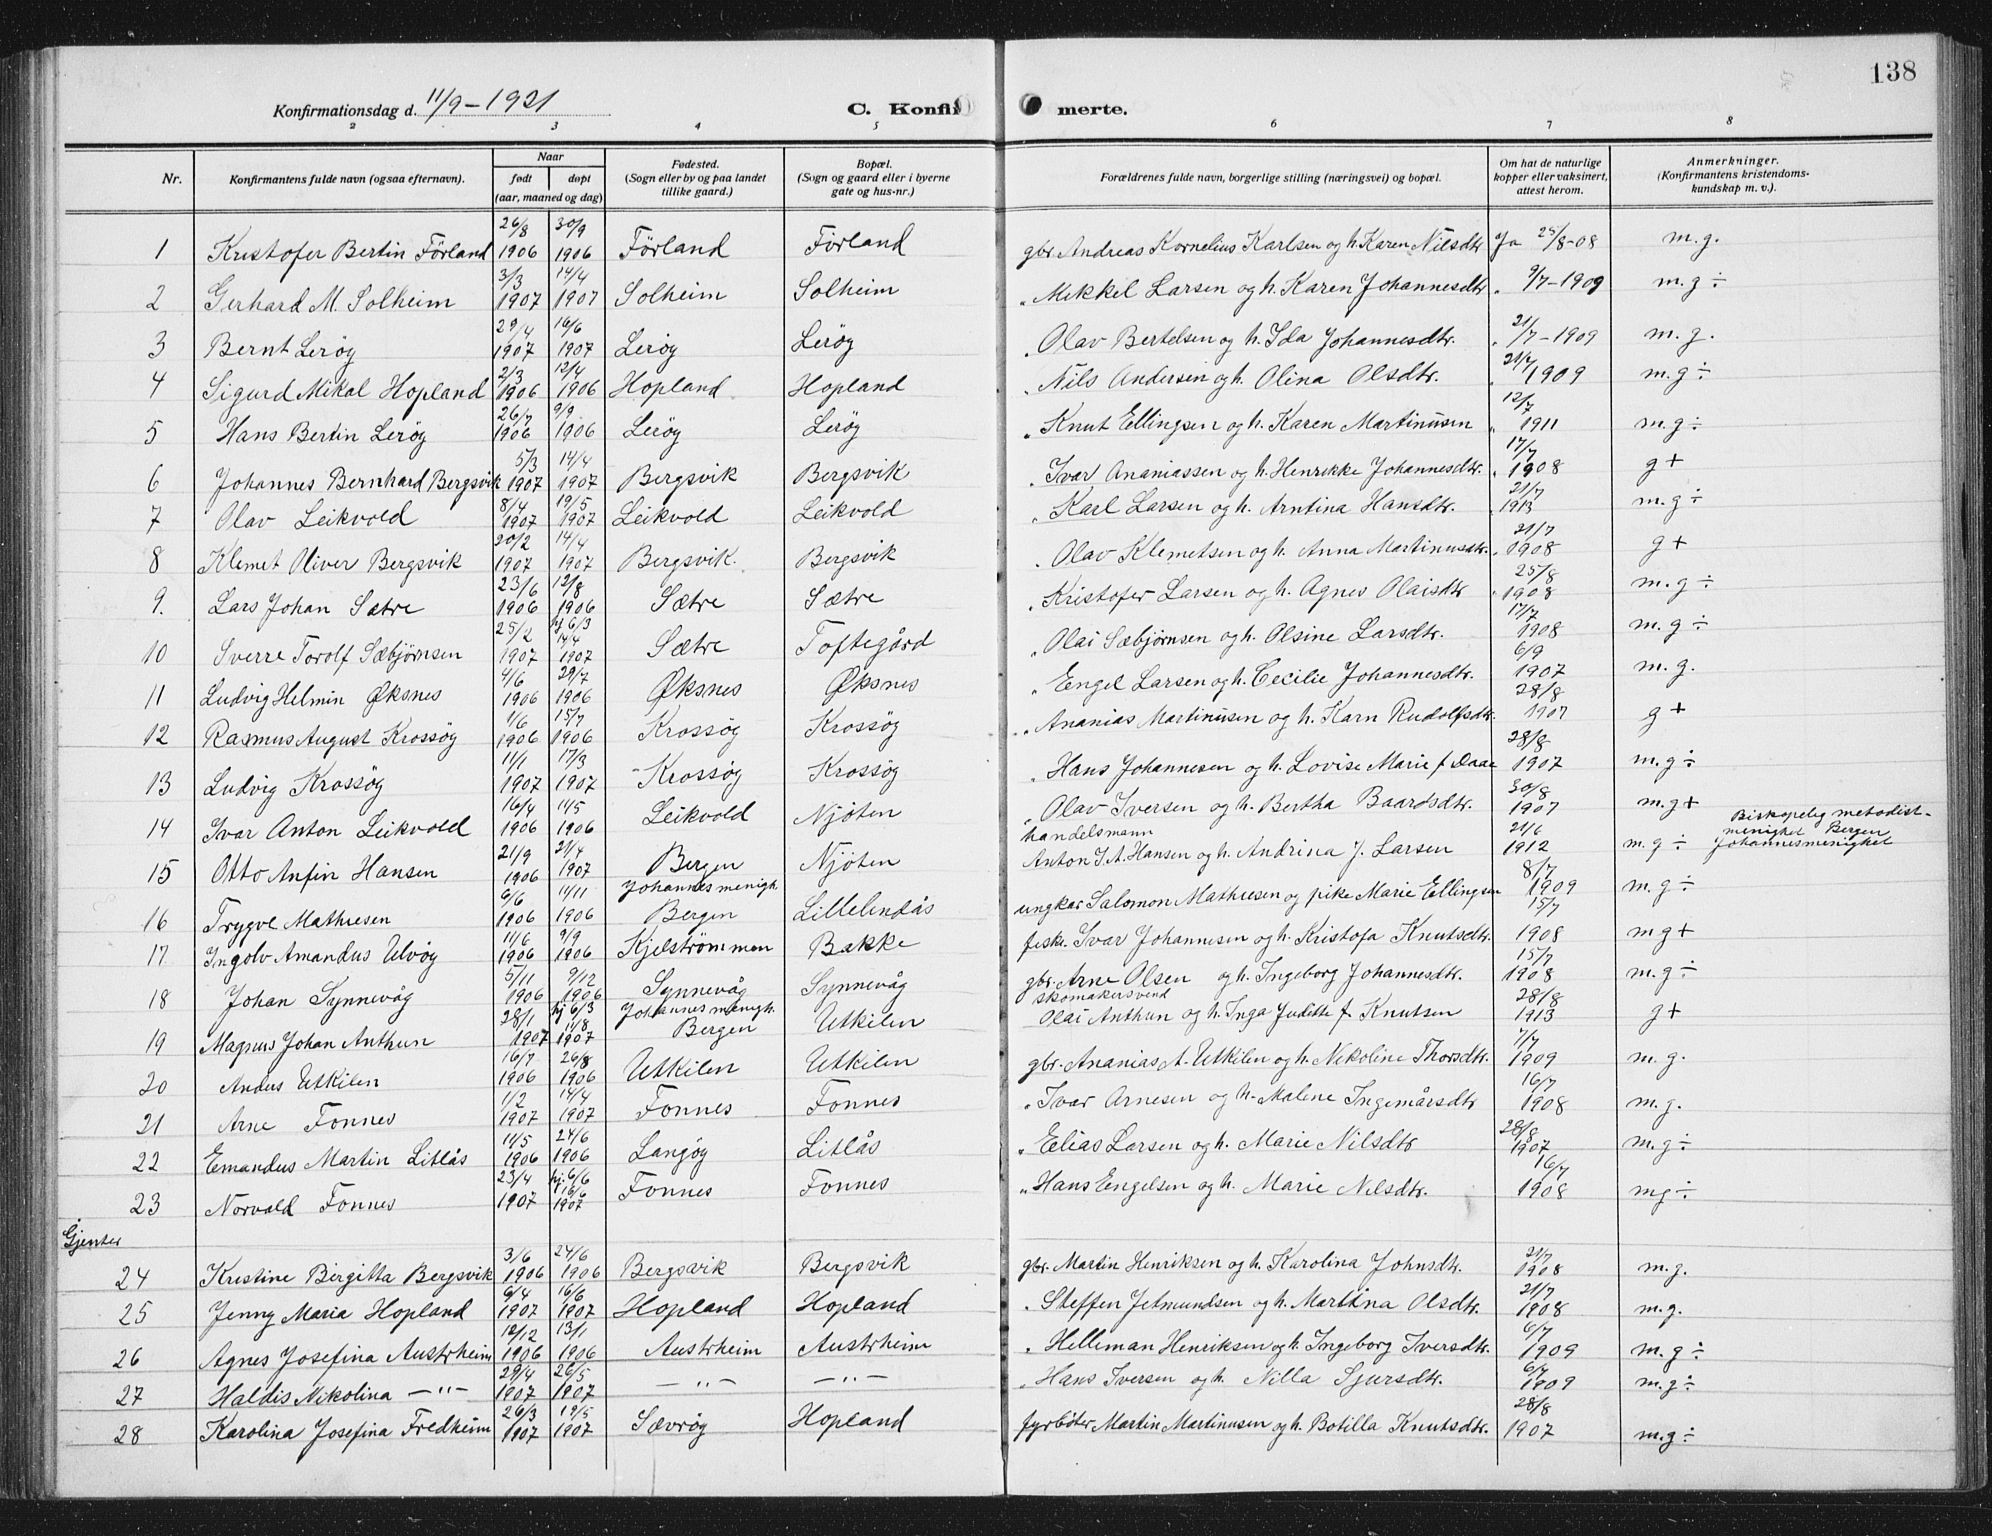 138
Konfirmationsdag d. 11/9-1921 C. Konfir merte.
2 3 4 5 6 7 8
Nr. Konfirmantens fulde navn (ogsaa efternavn). Naar født døpt (aar, maaned og dag) Fødested. (Sogn eller by og paa landet tillike gaard.) Bopæl. (Sogn og gaard eller i byerne gate og hus-nr.) Forældrenes fulde navn, borgerlige stilling (næringsvei) og bopæl. Om hat de naturlige kopper eller vaksinert, attest herom. Anmerkninger. (Konfirmantens kristendoms-kundskap m. v.).
1 Kristofer Bertin Förland 26/8 1906 30/9 1906 Förland Förland gbr. Andreas Kornelius Karlsen og h. Karen Nilsdtr. Ja 25/8-08 m.g.
2 Gerhard M. Solheim 3/3 1907 14/4 1907 Solheim Solheim " Mikkel Larsen og h. Karen Johannesdtr. " 9/7-1909 m.g ÷
3 Bernt Lerøy 29/4 1907 16/6 1907 Lerøy Lerøy " Olav Bertelsen og h. Ida Johannesdtr. " 21/7-1909 m.g.
4 Sigurd Mikal Hopland 2/3 1906 12/4 1906 Hopland Hopland " Nils Andersen og h. Olina Olsdtr. " 21/7 1909 m.g ÷
5 Hans Bertin Lerøy 26/7 1906 9/9 1906 Lerøy Lerøy " Knut Ellingsen og h. Karen Martinusen " 12/7 1911 m.g ÷
6 Johannes Bernhard Bergsvik 5/3 1907 14/4 1907 Bergsvik Bergsvik " Ivar Ananiassen og h. Henrikke Johannesdtr. " 17/7 1908 g +
7 Olav Leikvold 8/4 1907 19/5 1907 Leikvold Leikvold " Karl Larsen og h. Arntina Hansdtr. " 21/7 1913 m.g ÷
8 Klemet Oliver Bergsvik 20/2 1907 14/4 1907 Bergsvik. Bergsvik " Olav Klemetsen og h. Anna Martinusdtr. " 21/7 1908 g +
9. Lars Johan Sætre 23/6 1906 12/8 1906 Sætre Sætre " Kristofer Larsen og h. Agnes Olaisdtr " 25/8 1908 m.g ÷
10 Sverre Torolf Sæbjørnsen 25/2 1907 hj 6/3 14/4 1907 Sætre Toftegård " Olai Sæbjørnsen og h. Olsine Larsdtr. 17/7 1908 m.g ÷
11 Ludvig Helmin Øksnes 4/6 1906 29/7 1906 Øksnes Øksnes " Engel Larsen og h. Cecilie Johannesdtr. 6/9 1907 m.g.
12 Rasmus August Krossøy 1/6 1906 15/7 1906 Krossøy Krossøy " Ananias Martinusen og h. Karn Rudolfsdtr. 28/8 1907 g +
13 Ludvig Krossøy 11/1 1907 17/3 1907 Krossøy Krossøy " Hans Johannesen og h. Lovise Marie f. Daae 28/8 1907 m.g ÷
14 Ivar Anton Leikvold 16/4 1906 11/5 1906 Leikvold Njøten " Olav Iversen og h. Bertha Baardsdtr. 30/8 1907 m.g +
15 Otto Anfin Hansen 21/9 1906 21/4 1907 Bergen Njøten handelsmann Anton I.A. Hansen og h. Andrina J. Larsen 21/6 1912 m.g ÷ Biskopelig metodist-menighet Bergen Johannesmenighet
16 Trygve Mathiesen 6/6 1906 11/11 1906 Johannesmenigh. Bergen Lillelindås ungkar Salomon Mathiesen og pike Marie Ellingsen 8/7 1909 m.g ÷
17 Ingolv Amandus Ulvøy 11/6 1906 9/9 1906 Kjelstrømmen Bakke fisk. Ivar Johannesen og h. Kristofa Knutsdtr. 15/7 1908 m g +
18 Johan Synnevåg 5/11 1906 9/12 1906 Synnevåg Synnevåg gbr. Arne Olsen og h. Ingeborg Johannesdtr. 15/7 1908 m.g ÷
19 Magnus Johan Anthun 28/1 1907 hj 6/3 11/8 1907 Johannesmenigh. Bergen Utkilen skomakersvend Olai Anthun og h. Inga Juditte f. Knutsen 28/8 1913 g +
20 Andus Utkilen 16/7 1906 26/8 1906 Utkilen Utkilen gbr. Ananias A. Utkilen og h. Nikoline Thorsdtr. 7/7 1909 m.g.
21 Arne Fonnes 1/2 1907 14/4 1907 Fonnes Fonnes " Ivar Arnesen og h. Malene Ingemårsdtr 16/7 1908 m.g.
22 Emandus Martin Litlås 11/5 1906 24/6 1906 Langøy Litlås " Elias Larsen og h. Marie Nilsdtr 28/8 1907 m.g ÷
23 Norvald Fonnes 23/4 1907 hj. 6/6 16/6 1907 Fonnes Fonnes " Hans Engelsen og h. Marie Nilsdtr. 16/7 1908 mg ÷
Gjenter
24 Kristine Birgitta Bergsvik 3/6 1906 24/6 1906 Bergsvik Bergsvik gbr. Martin Henriksen og h. Karolina Johnsdtr. 21/7 1908 m.g.
25 Jenny Maria Hopland 6/4 1907 16/6 1907 Hopland Hopland " Steffen Jetmundsen og h. Martina Olsdtr. 21/7 1908 m.g.
26 Agnes Josefina Austrheim 12/12 1906 13/1 1906 Austrheim Austrheim " Helleman Henriksen og h. Ingeborg Iversdtr. 6/7 1909 m.g ÷
27 Haldis Nikolina —"— 29/4 1907 26/5 1907 —"— —"— " Hans Iversen og h. Nilla Sjursdtr. 6/7 1909 m.g ÷
28 Karolina Josefina Fredheim 26/3 1907 19/5 1907 Sævrøy Hopland fyrbøter Martin Martinusen og h. Botilla Knutsdtr. 28/8 1907 m.g ÷